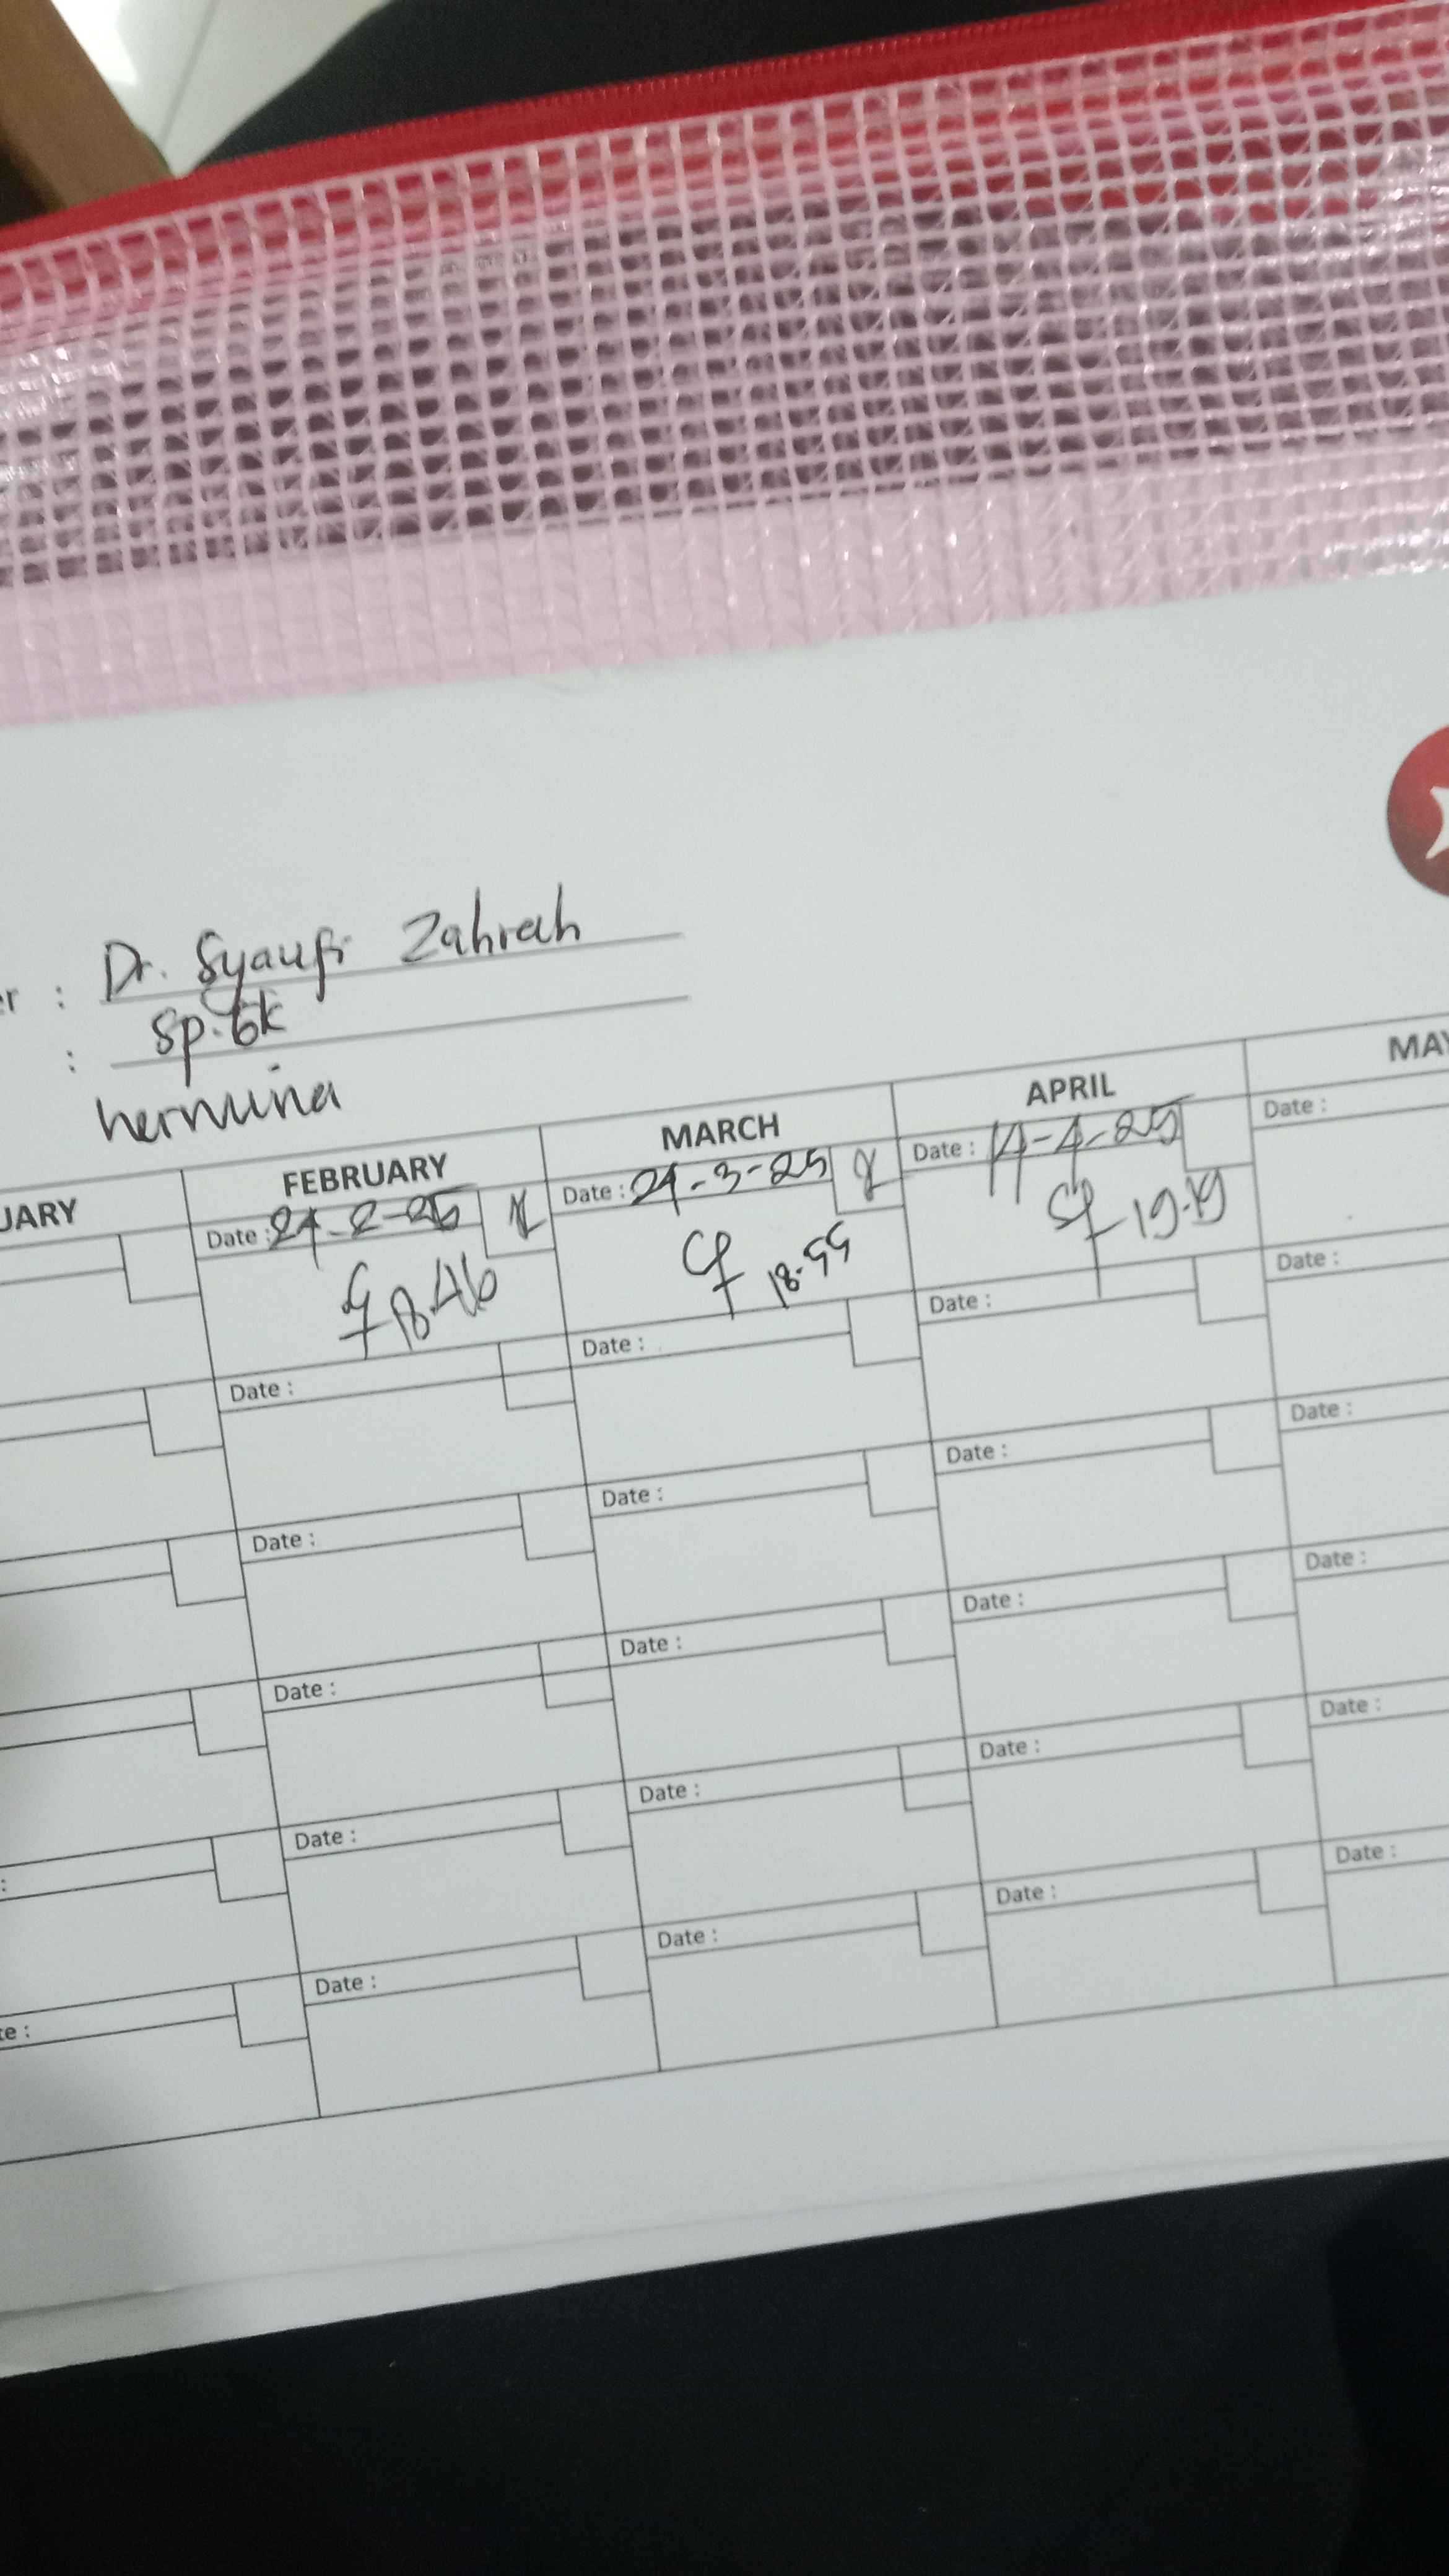 er : Dr. Syaufi Zahrah
: Sp.GK
hermina
UARY FEBRUARY MARCH APRIL MAY
Date : 24-2-25 Date : 24-3-25 Date : 14-4-25 Date :
18.46 18.55 19.19
Date : Date : Date : Date :
Date : Date : Date : Date :
Date : Date : Date : Date :
: Date : Date : Date : Date :
te : Date : Date : Date : Date :